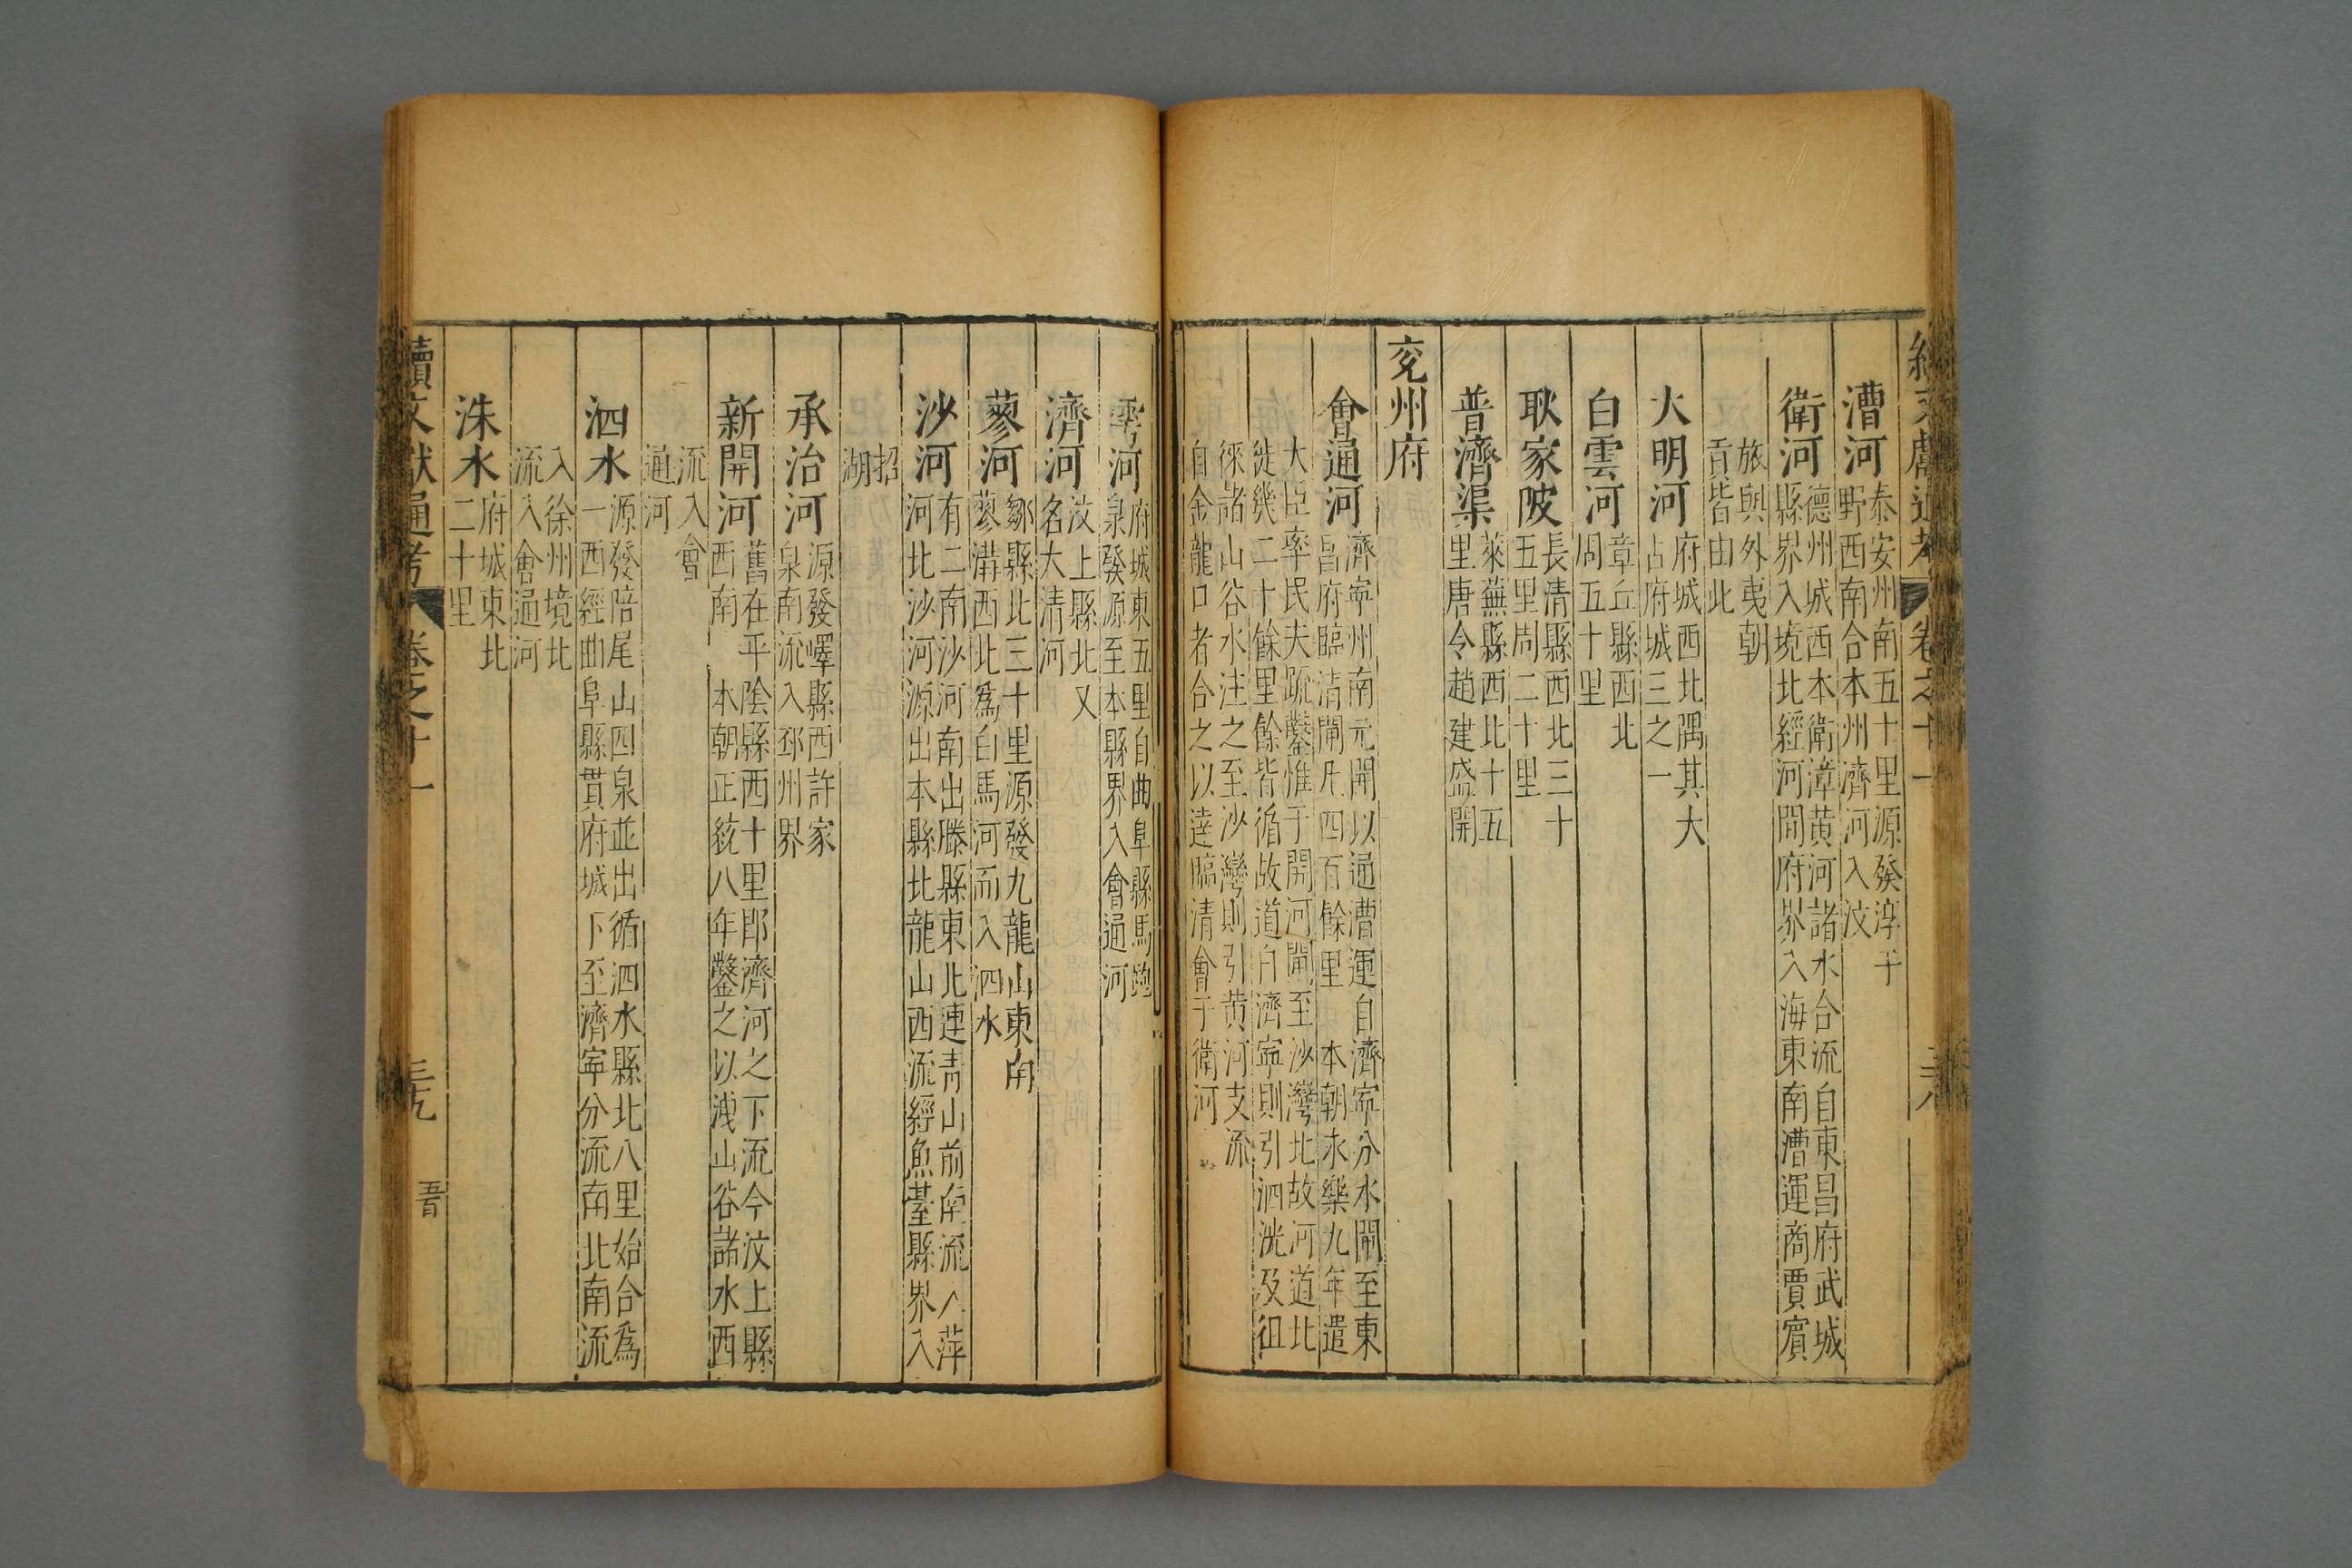 漕河泰安州南五十里源發淳于
野西南合本州濟河入汶
衛河德州城西本衛漳黄河諸水合流自東昌府武城
縣界入境北經河間府界入海東南漕運商賈賓
旅與外夷朝
貢皆由此
大明河府城西北隅其大
占府城三之一
白雲河章丘縣西北
周五十里
耿家陂長清縣西北三十
五里周二十里
普濟渠萊蕪縣西北十五
里唐令趙建盛開
兖州府
會通河濟寧州南元開以通漕運自濟寧分水閘至東
昌府臨清閘凡四百餘里 本朝永樂九年遣
大臣率民夫疏鑿惟于開河閘至沙灣北故河道北
徙幾二十餘里餘皆循故道自濟寧則引泗洸及徂
徠諸山谷水注之至沙灣則引黄河支流
自金龍口者合之以達臨清會于衛河
雩河府城東五里自曲阜縣馬跑
泉發源至本縣界入會通河
濟河汶上縣北又
名大清河
蓼河鄒縣北三十里源發九龍山東南
蓼溝西北爲白馬河而入泗水
沙河有二南沙河南出滕縣東北連青山前南流入萍
河北沙河源出本縣北龍山西流經魚臺縣界入
招
湖
承治河源發嶧縣西許家
泉南流入邳州界
新開河舊在平陰縣西十里即濟河之下流今汶上縣
西南 本朝正統八年鑿之以洩山谷諸水西
流入會
通河
泗水源發陪尾山四泉並出循泗水縣北八里始合爲
一西經曲阜縣貫府城下至濟寧分流南北南流
入徐州境北
流入會通河
洙水府城東北
二十里
續文獻通考 卷之十一 三九